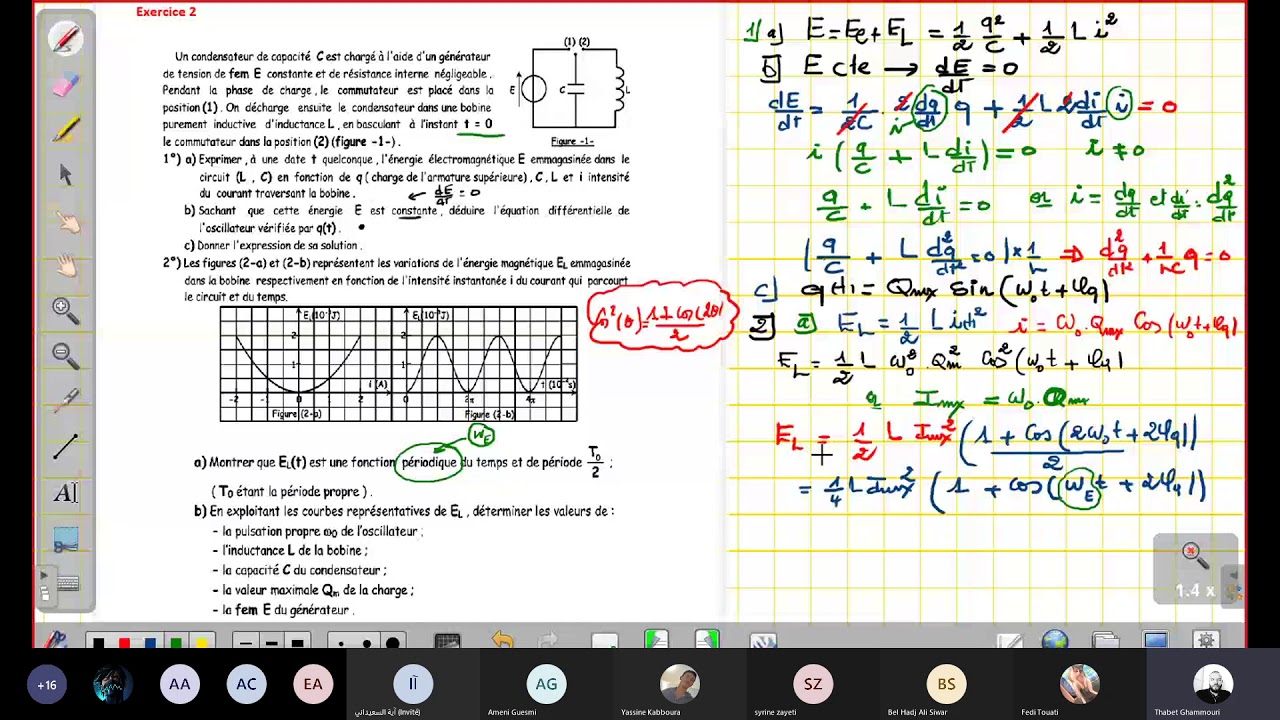 Exercice 2
Un condensateur de capacité C est chargé à l'aide d'un générateur
de tension de fem E constante et de résistance interne négligeable .
Pendant la phase de charge , le commutateur est placé dans la
position (1) . On décharge ensuite le condensateur dans une bobine
purement inductive d'inductance L , en basculant à l'instant t = 0
le commutateur en position (2) (figure -1-) .
(1) (2)
E
C
L
Figure -1-
1°) a) Exprimer , à une date t quelconque , l'énergie électromagnétique E emmagasinée dans le
circuit (L , C) en fonction de q ( charge de l'armature supérieure) , C , L et i intensité
du courant traversant la bobine .
← dE/dt = 0
b) Sachant que cette énergie E est constante , déduire l'équation différentielle de
l'oscillateur vérifiée par q(t) .
c) Donner l'expression de sa solution .
2°) Les figures (2-a) et (2-b) représentent les variations de l'énergie magnétique EL emmagasinée
dans la bobine respectivement en fonction de l'intensité instantanée i du courant qui parcourt
le circuit et du temps.
EL(10⁻³J)
2
1
-2 -1 0 2
i (A)
Figure (2-a)
EL(10⁻³J)
2
1
0 2π 4π
Figure (2-b)
WE
a) Montrer que EL(t) est une fonction périodique du temps et de période T0/2 ;
( T0 étant la période propre ) .
b) En exploitant les courbes représentatives de EL , déterminer les valeurs de :
- la pulsation propre ω0 de l'oscillateur ;
- l'inductance L de la bobine ;
- la capacité C du condensateur ;
- la valeur maximale Qm de la charge ;
- la fem E du générateur .
1) a) E = Ec + EL = 1/2 q²/C + 1/2 L i²
b) E cte → dE/dt = 0
dE/dt = 1/2C · 2 dq/dt q + 1/2 L 2 di/dt i = 0
i
i ( q/C + L di/dt ) = 0 i ≠ 0
q/C + L di/dt = 0 or i = dq/dt et di/dt = d²q/dt²
( q/C + L d²q/dt² = 0 ) × 1/L ⇒ d²q/dt² + 1/LC q = 0
c) q(t) = Qmx sin(ω0t + φq)
2) a) EL = 1/2 L i(t)² i = ω0 · Qmx cos(ω0t + φq)
cos²(θ) = 1 + cos(2θ)/2
EL = 1/2 L ω0² · Qm² cos²(ω0t + φq)
or Imx = ω0 · Qmx
EL = 1/2 L Imx² ( 1 + cos(2ω0t + 2φq) / 2 )
= 1/4 L Imx² ( 1 + cos(ωE t + 2φq) )
1.4 x
+16
AA
AC
EA
AG
SZ
BS
(Invité) آية السعيداني
Ameni Guesmi
Yassine Kabboura
syrine zayeti
Bel Hadj Ali Siwar
Fedi Touati
Thabet Ghammouri